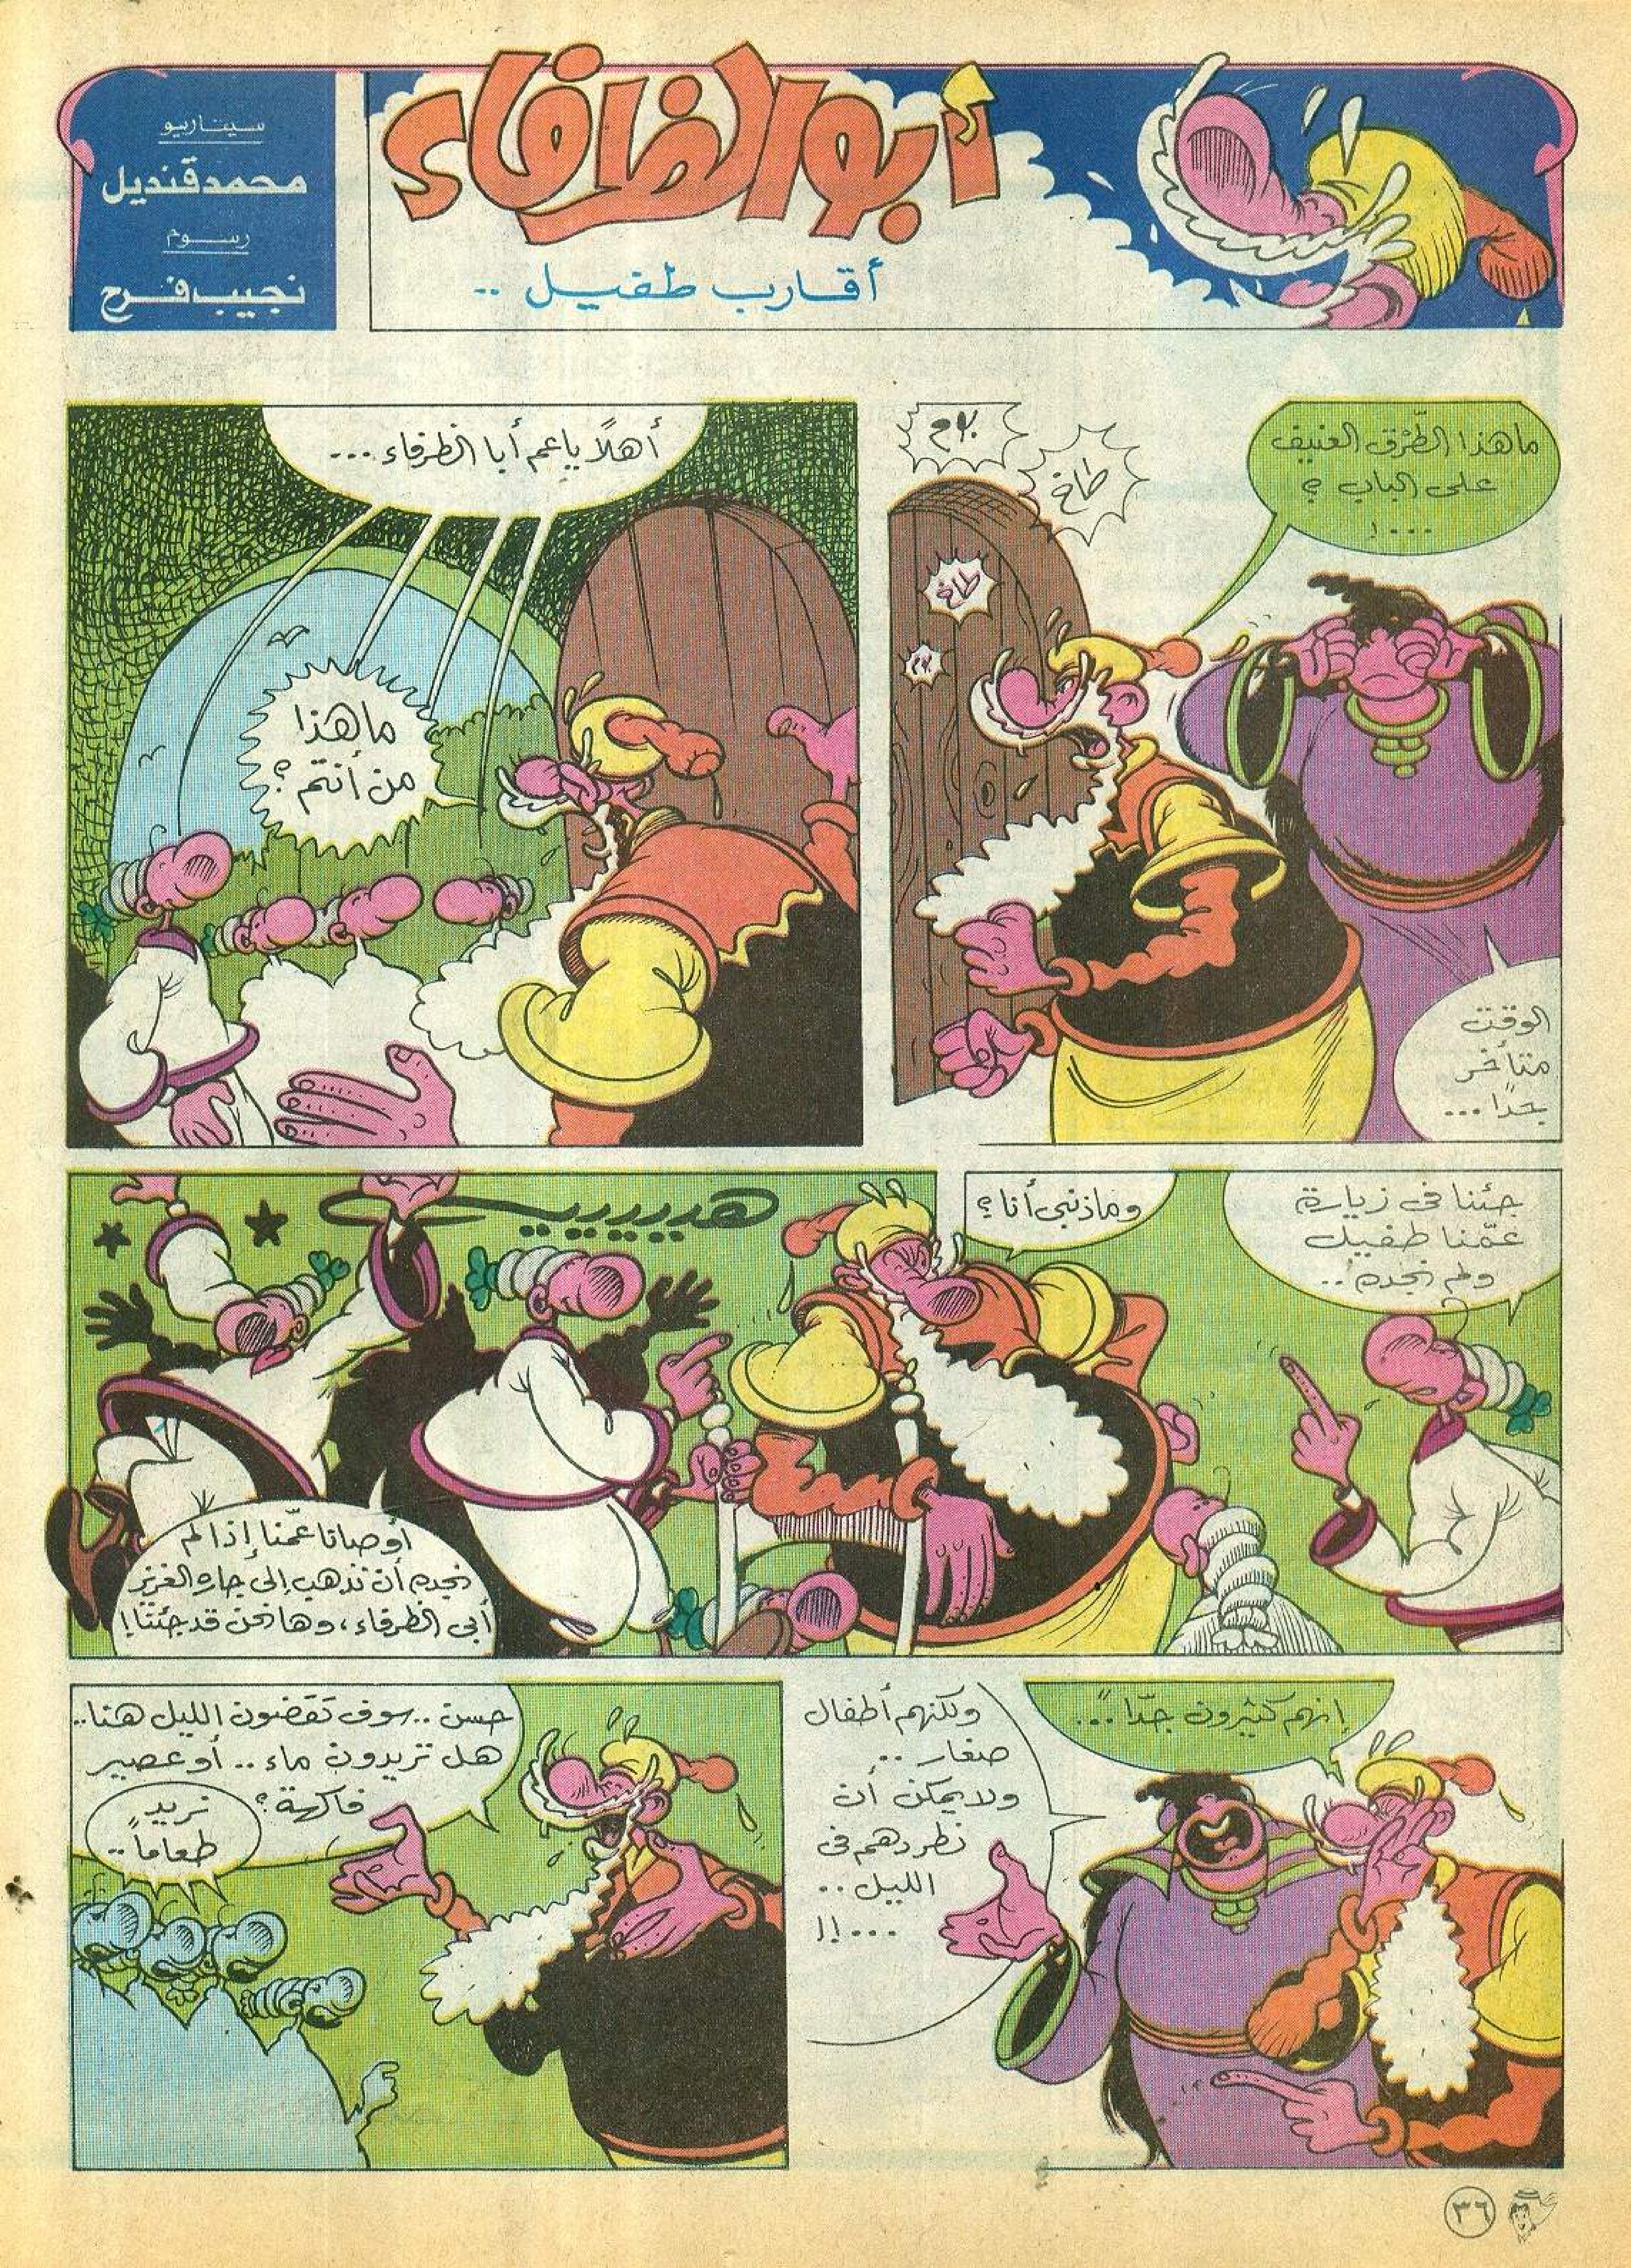 أبو الظرفاء
أقارب طفيل ..
سيناريو
محمد قنديل
رسوم
نجيب فرح
ما هذا الطَّرْق العنيف
على الباب ؟
...!
بوم
طاخ
طاخ
بوم
الوقت
متأخر
جدًا ...
أهلًا يا عم أبا الظرفاء ...
ما هذا
من أنتم ؟
جئنا فى زيارة
عمّنا طفيل
ولم نجده ..
وما ذنبى أنا ؟
هيييييييه
أوصانا عمّنا إذا لم
نجده أن نذهب إلى جاره العزيز
أبى الظرفاء ، وها نحن قد جئنا !
إنهم كثيرون جدًّا ...
ولكنهم أطفال
صغار ..
ولا يمكن أن
نطردهم فى
الليل ..
...!!
حسن .. سوف تقضون الليل هنا ..
هل تريدون ماء .. أو عصير
فاكهة ؟
نريد
طعاماً ..
٣٦